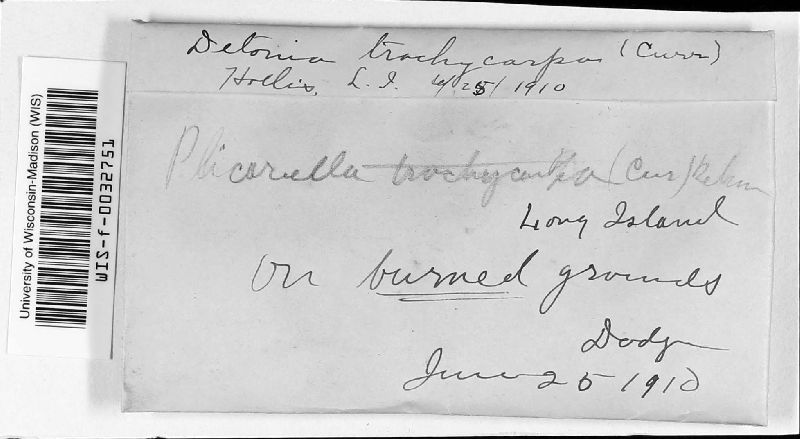 Detonia trachycarpa (Curr)
Hollis, L. I. 6/25/1910
Plicariella trachycarpa (Cur) Rehm
Long Island
On burned grounds
Dodge
June 25 1910
University of Wisconsin-Madison (WIS)
WIS-f-0032751